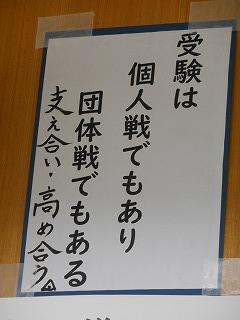 受験は
個人戦でもあり
団体戦でもある
支え合い・高め合う